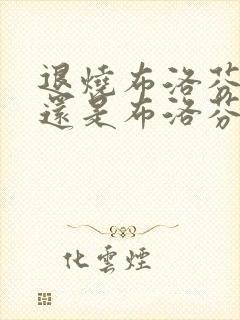 退燒布洛芬
還是布洛芬
化雲煙